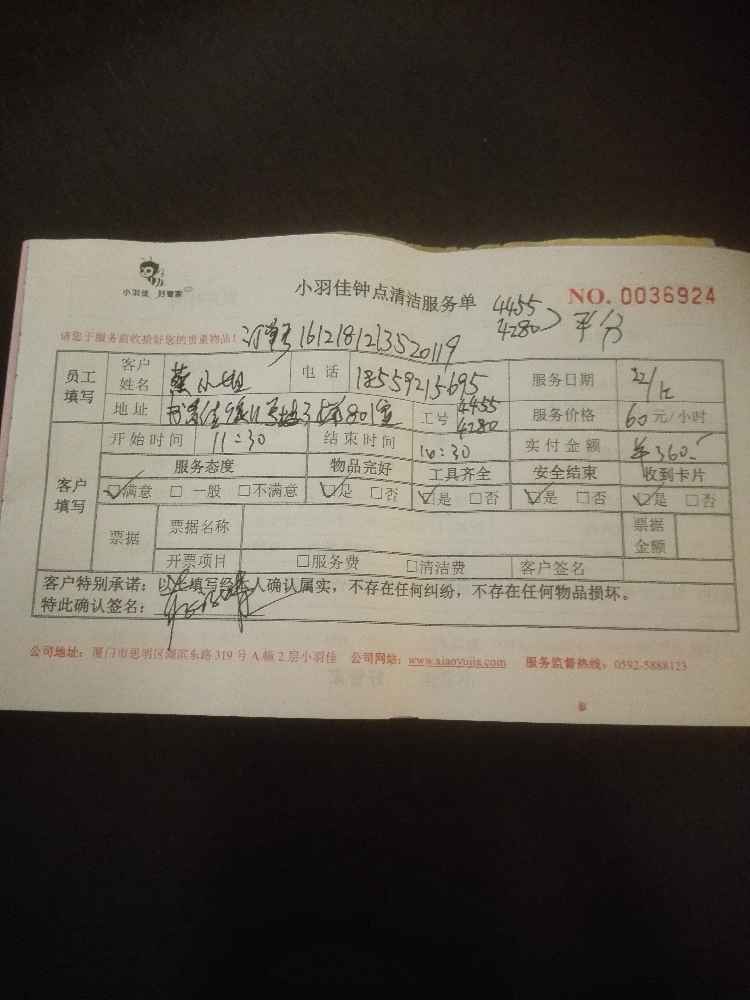 小羽佳 好管家
小羽佳钟点清洁服务单
4455
4280 平分
NO. 0036924
请您于服务前收捡好您的贵重物品!
订单号1612181213520119
员工填写 客户姓名 小姐 电话 18559215695 服务日期
地址 801室 工号 4455 4280 服务价格 60元/小时
客户填写 开始时间 11:30 结束时间 16:30 实付金额 ¥360.-
服务态度 物品完好 工具齐全 安全结束 收到卡片
☑满意 □一般 □不满意 ☑是 □否 ☑是 □否 ☑是 □否 ☑是 □否
票据 票据名称 票据金额
开票项目 □服务费 □清洁费 客户签名
客户特别承诺:以上填写经本人确认属实,不存在任何纠纷,不存在任何物品损坏。
特此确认签名:
公司地址:厦门市思明区湖滨东路319号A幢2层小羽佳 公司网站:www.xiaoyujia.com 服务监督热线:0592-5888123